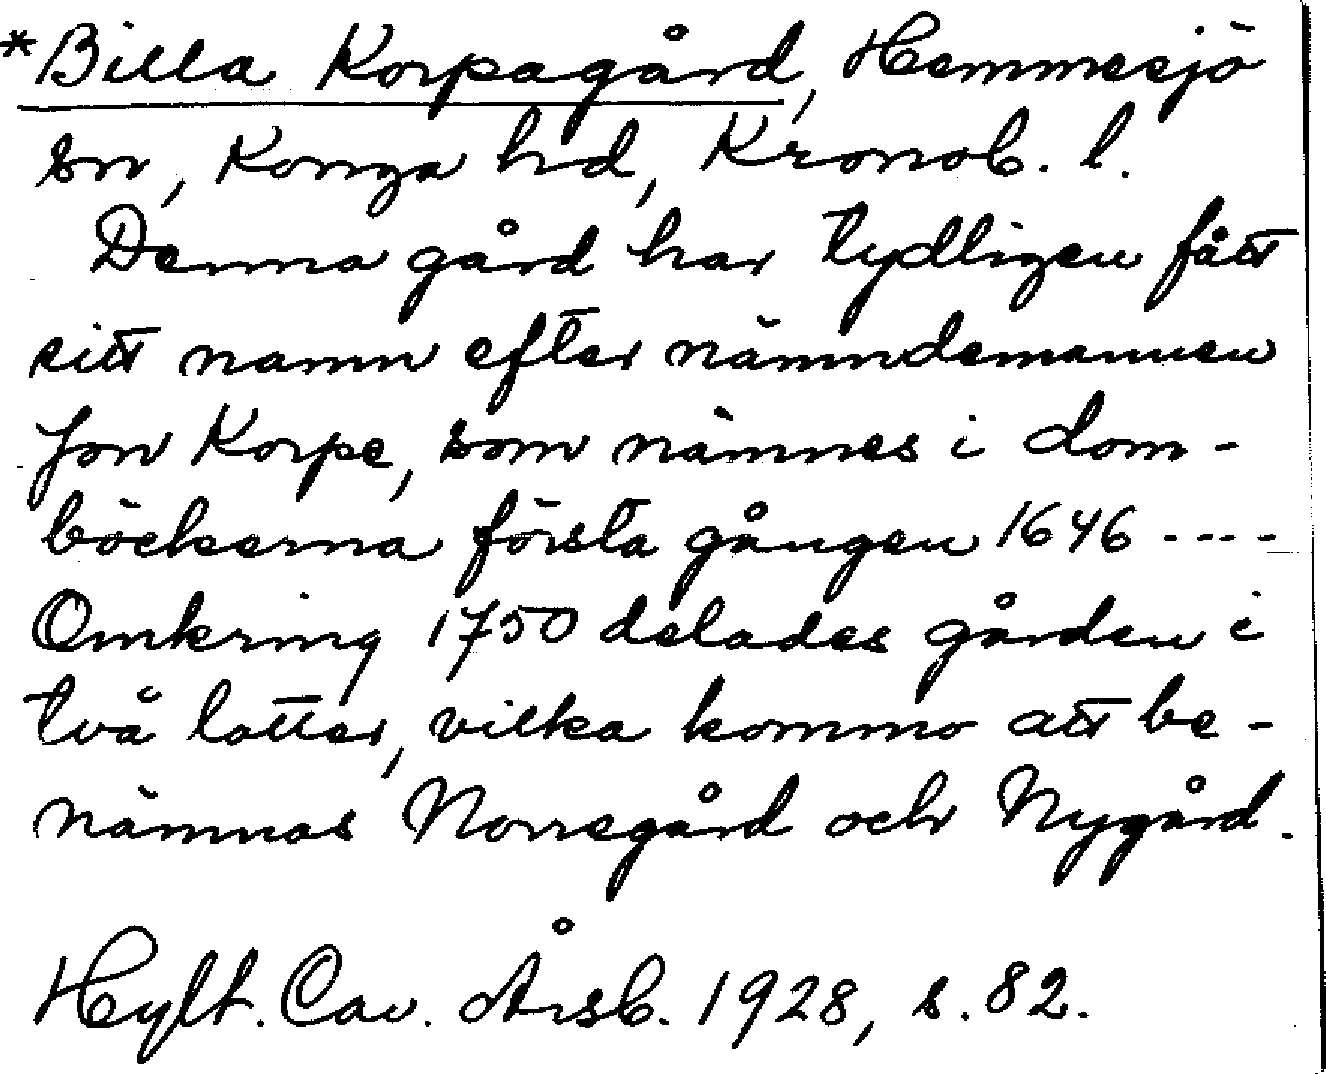 *Billa Korpagård, Hemmesjö
sn, Konga hd, Kronob. l.
Denna gård har tydligen fått
sitt namn efter nämndemannen
Jon Korpe, som nämnes i dom-
böckerna första gången 1646 ----
Omkring 1750 delades gården i
två lotter, vilka kommo att be-
nämnas Norregård och Nygård.
Hylt. Cav. Årsb. 1928, s. 82.